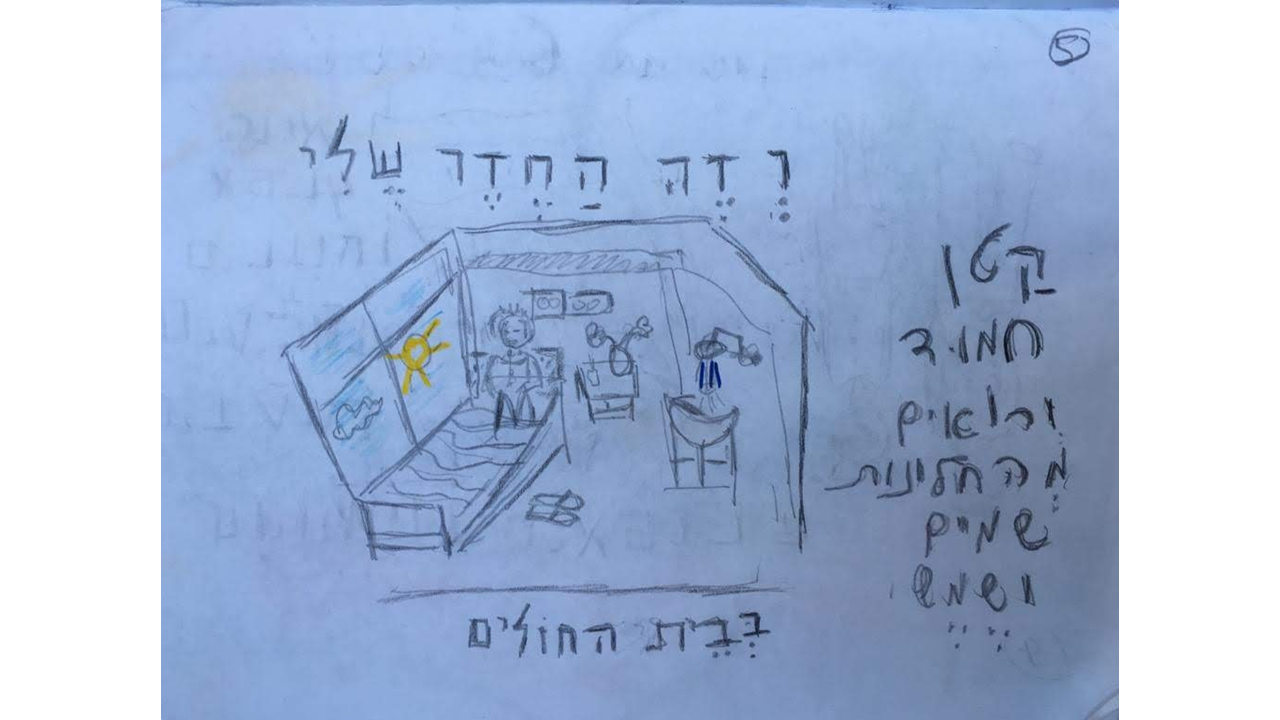 5
וְזֶה הַחֶדֶר שֶׁלִי
קָטָן
חמוד
ורואים
מֵהחלונות
שָמיים
ושֶמֶש
בְּבֵית החוֹלִים